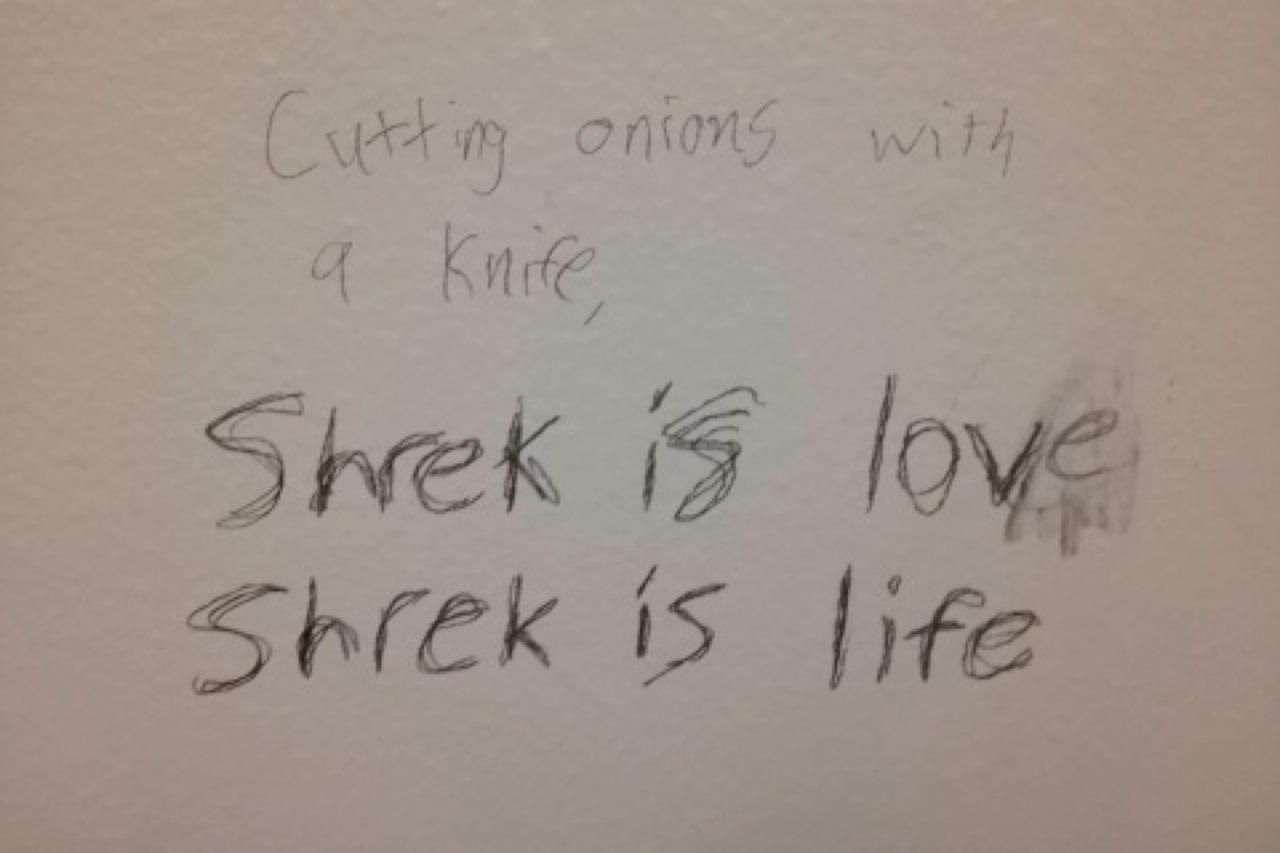 Cutting onions with
a Knife,
Shrek is love
Shrek is life